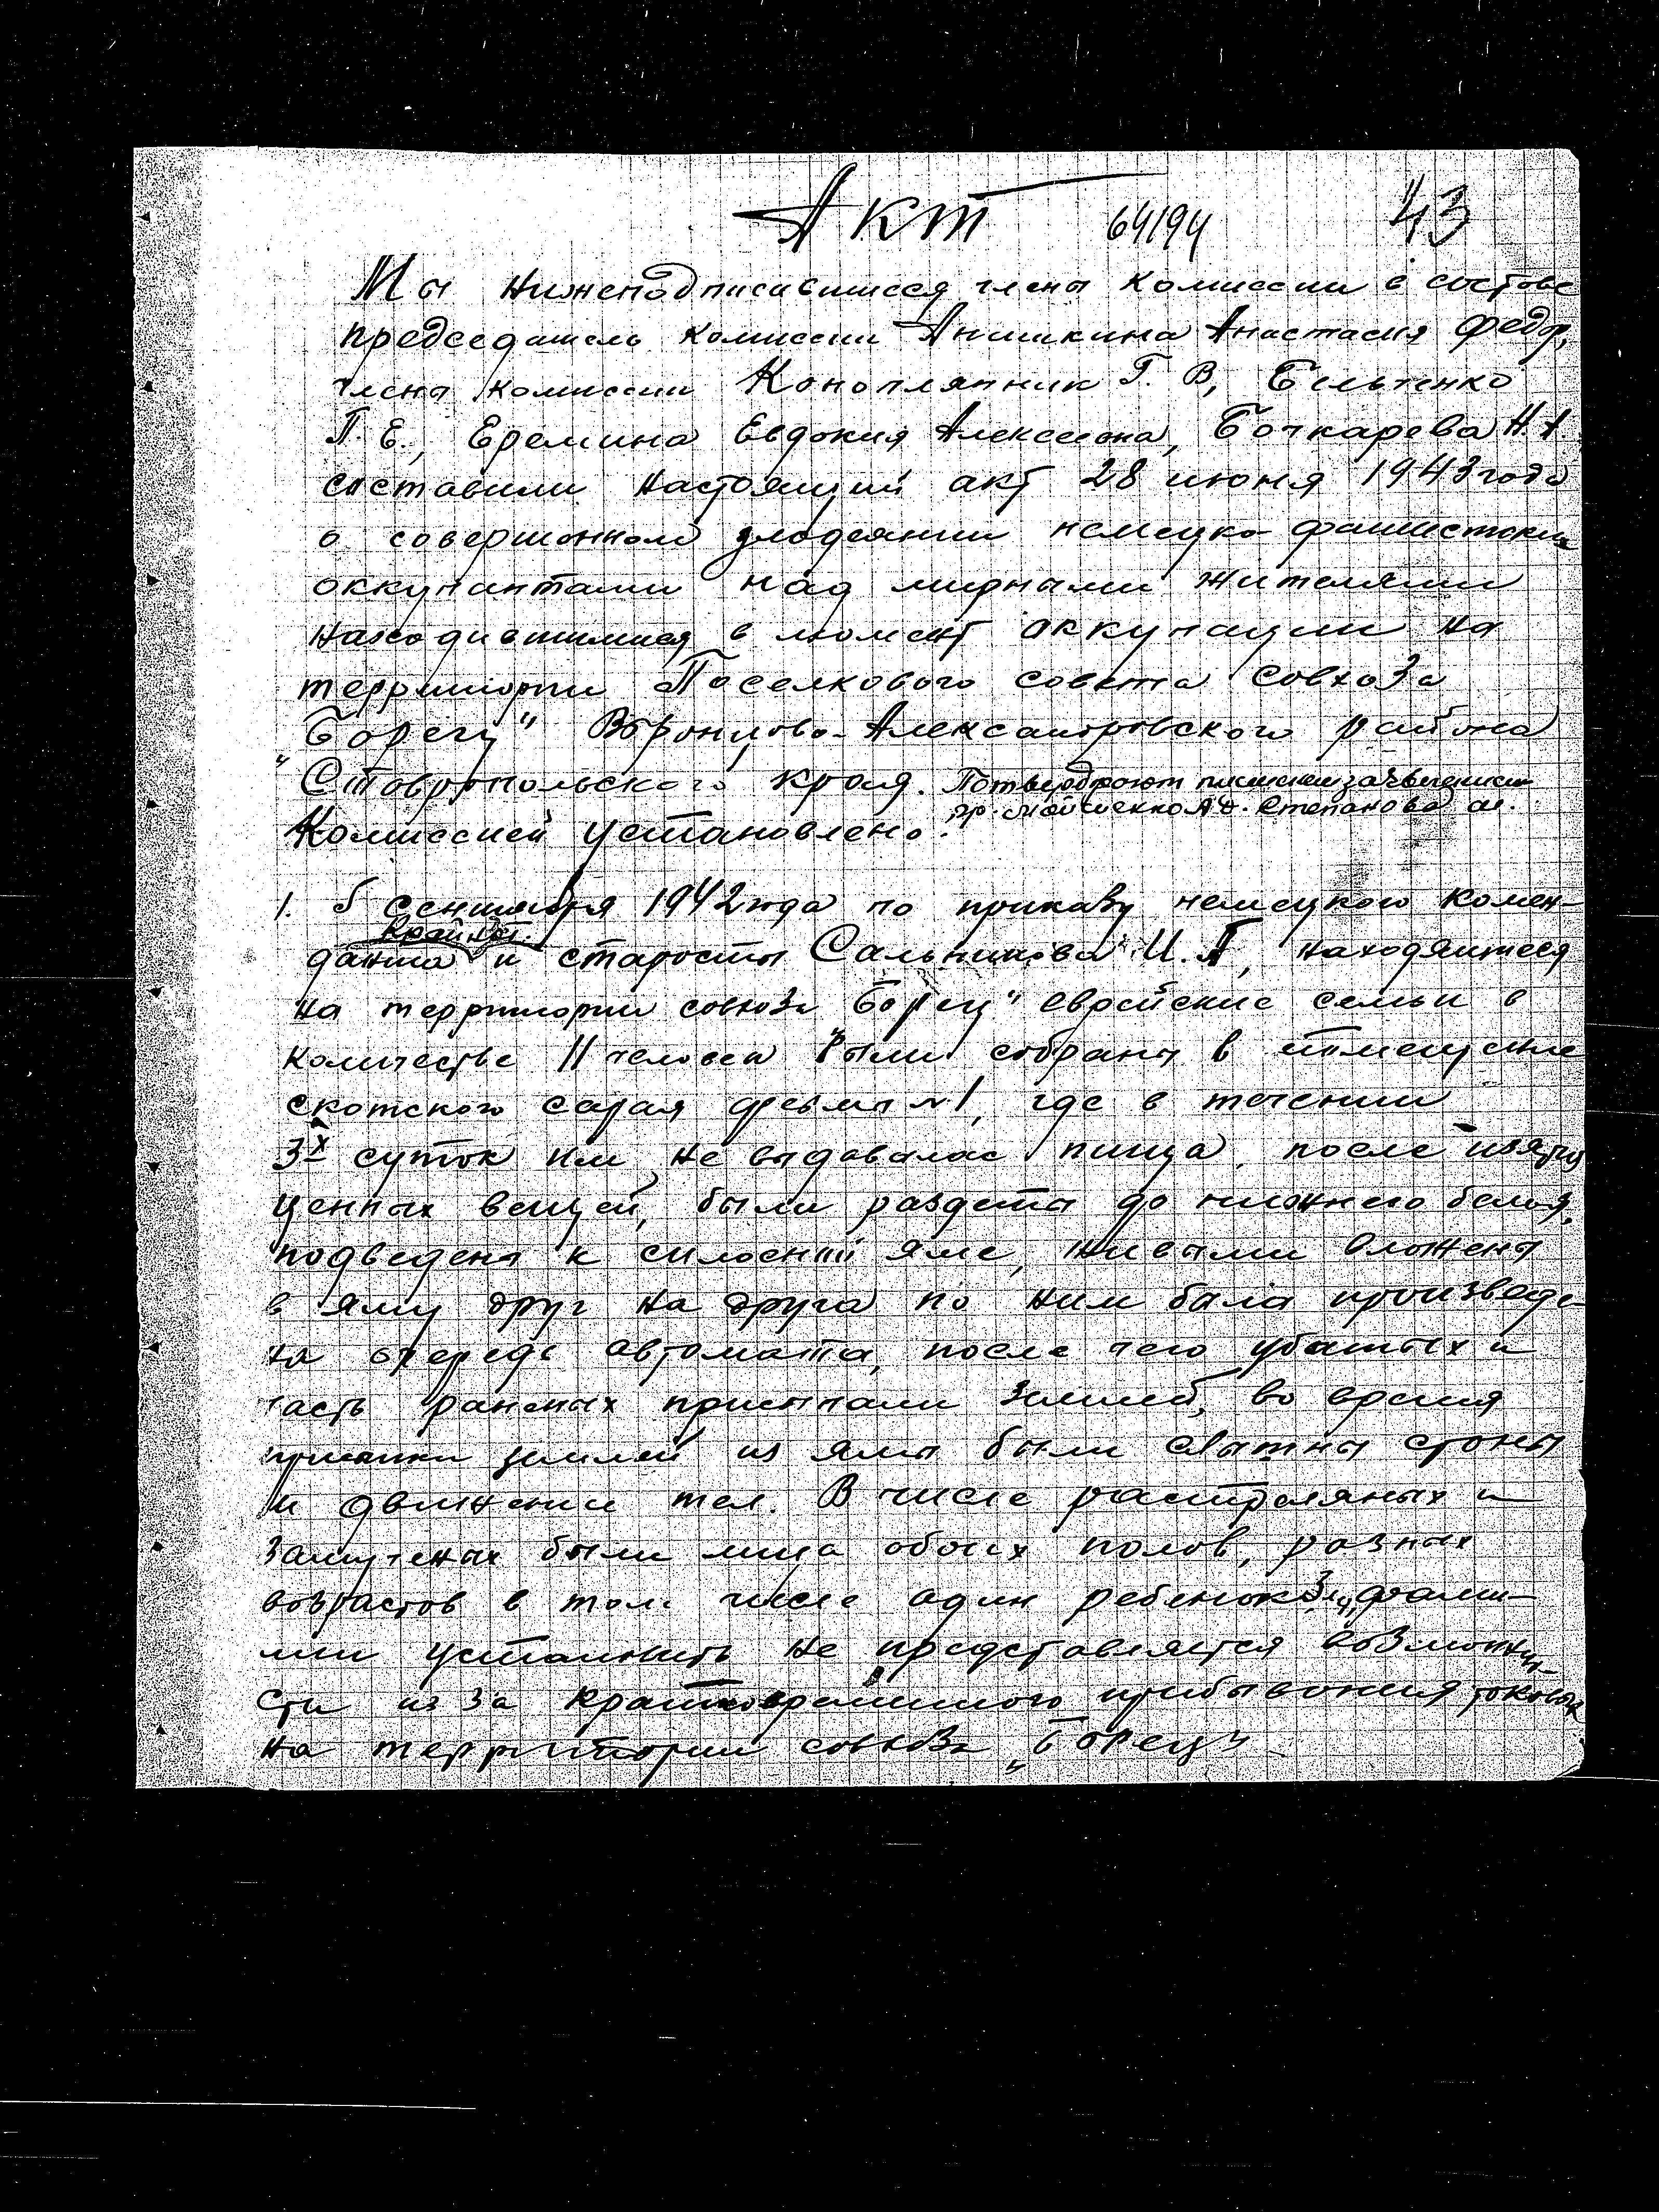 Акт 64194 43
Мы нижеподписавшиеся члены комиссии в составе
председатель комиссии Анишкина Анастасия Федор,
члены комиссии Конопляник Г. В, Бельченко
П. Е., Еремина Евдокия Алексеевна, Бочкарева Н. А.
составили настоящий акт 28 июня 1943 года
о совершонном злодеянии немецко-фашистскими
оккупантами над мирными жителями
находившимися в момент оккупации на
территории Поселкового совета Совхоза
"Борец" Воронцово-Александровского района
Ставропольского края. Потверждают
гр. Степанова
Комиссией установлено.
1. 5 сентября 1942 года по приказу немецкого комен-
данта и старосты Сальникова И. П, находящиеся
на территории совхоза "Борец" еврейские семьи в
количестве 11 человек были собраны в помещение
скотского сарая фермы №1, где в течении
3х суток им не выдавалас пища, после изятия
ценных вещей, были раздеты до нижнего белья,
подведены к силосной яме, живыми вложены
в яму друг на друга по ним была произведе-
на очередь автомата, после чего убитых и
часть раненых присыпали землей, во время
землей из ямы были слышны стоны
и движение тел. В числе растреляных и
замученых были лица обоих полов, разных
возрастов в том числе один ребенок фами-
лии установить не представляется возможно-
сти из за кратковременного прибывания таковых
на территории совхоза "Борец"